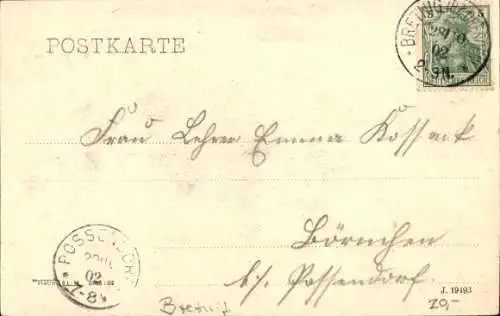 POSTKARTE
BRETNIG
28 10
02
2-3N.
Frau Lehrer Emma Kossack
Börnchen
b/. Possendorf.
POSSENDORF
02
7-8
J. 19493
Bretnig
20,-